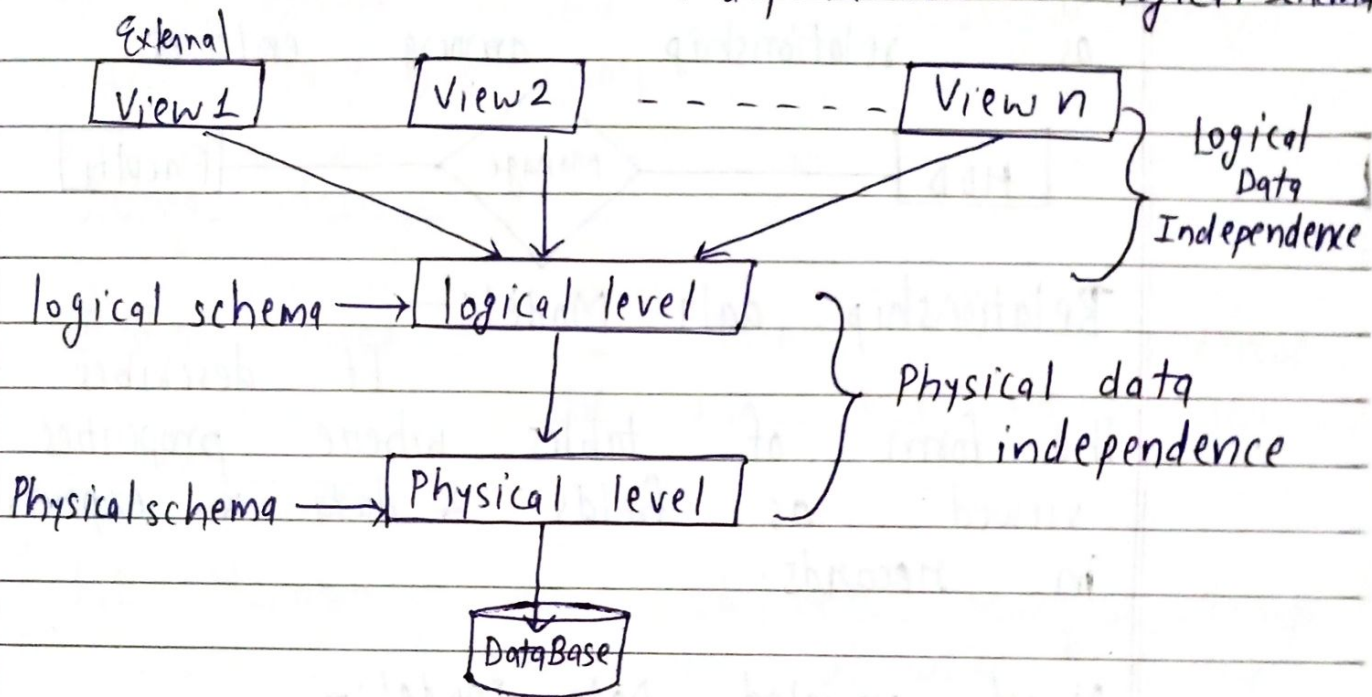 External
View 1 View 2 View n
Logical
Data
Independence
logical schema logical level
Physical data
independence
Physical schema Physical level
DataBase